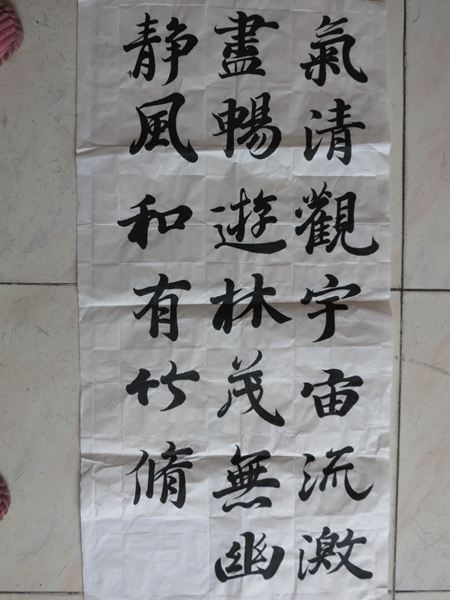 氣清觀宇宙流激
盡暢遊林茂無幽
静風和有竹脩